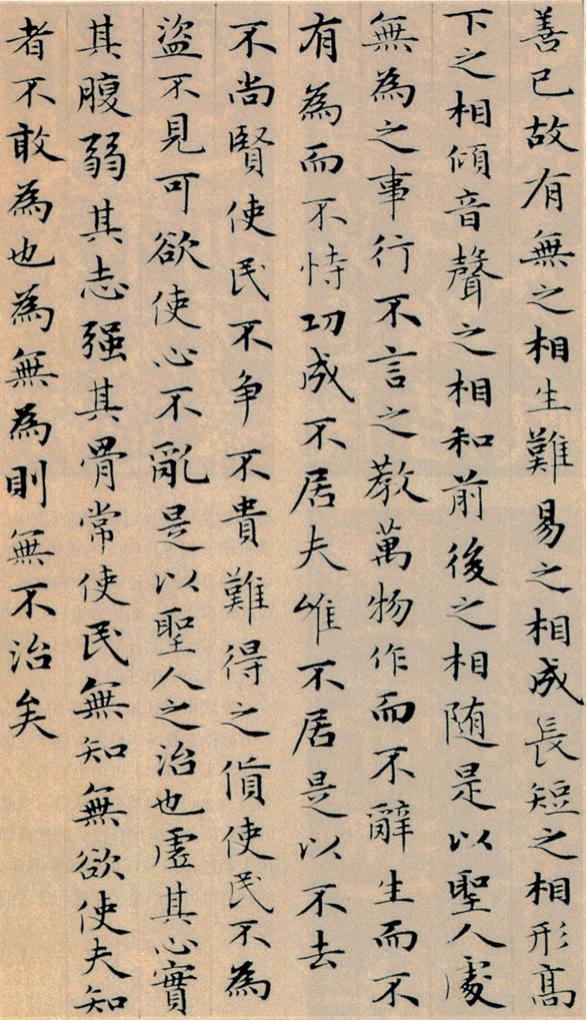 善已故有無之相生難易之相成長短之相形高
下之相傾音聲之相和前後之相随是以聖人處
無為之事行不言之教萬物作而不辭生而不
有為而不恃功成不居夫唯不居是以不去
不尚賢使民不争不貴難得之貨使民不為
盜不見可欲使心不亂是以聖人之治也虛其心實
其腹弱其志强其骨常使民無知無欲使夫知
者不敢為也為無為則無不治矣